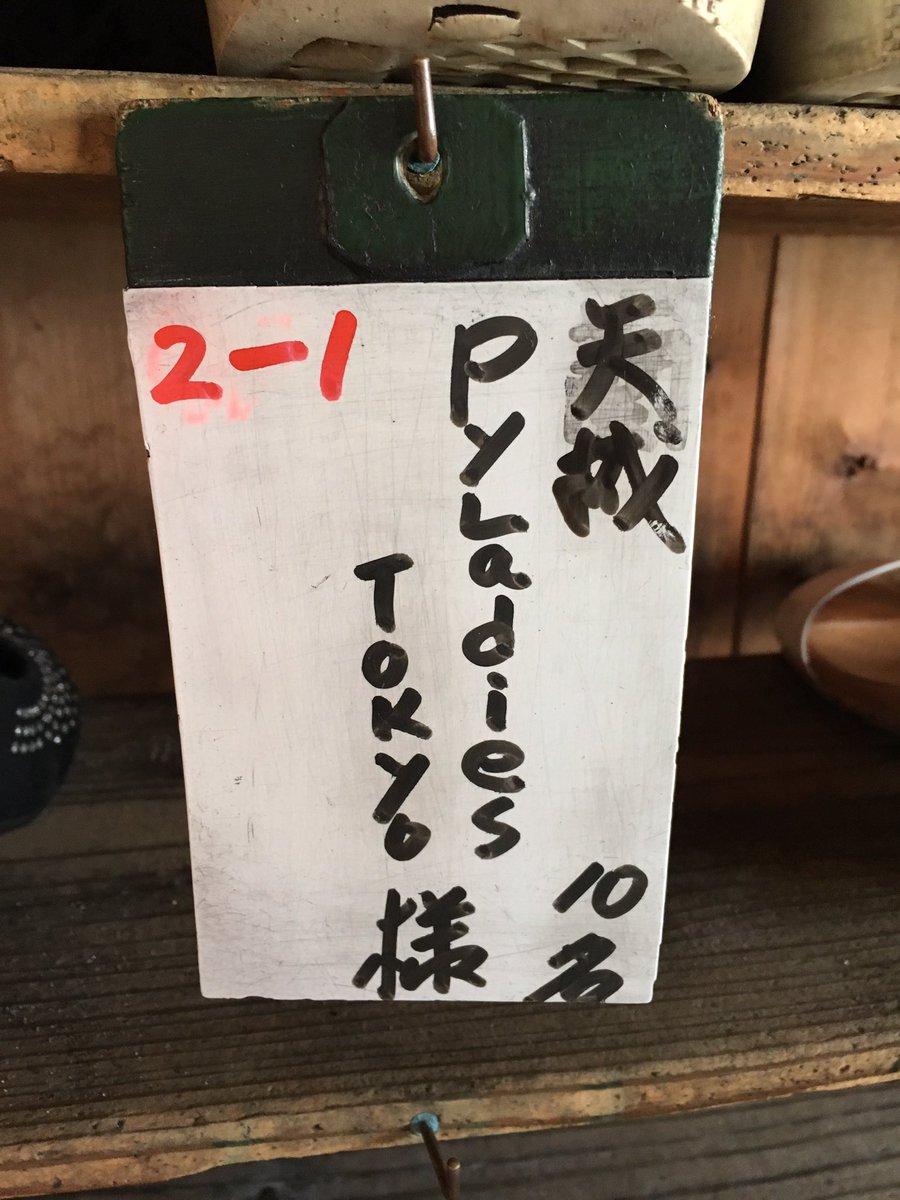 天城 10名
PyLadies
TOKYO 様
2-1